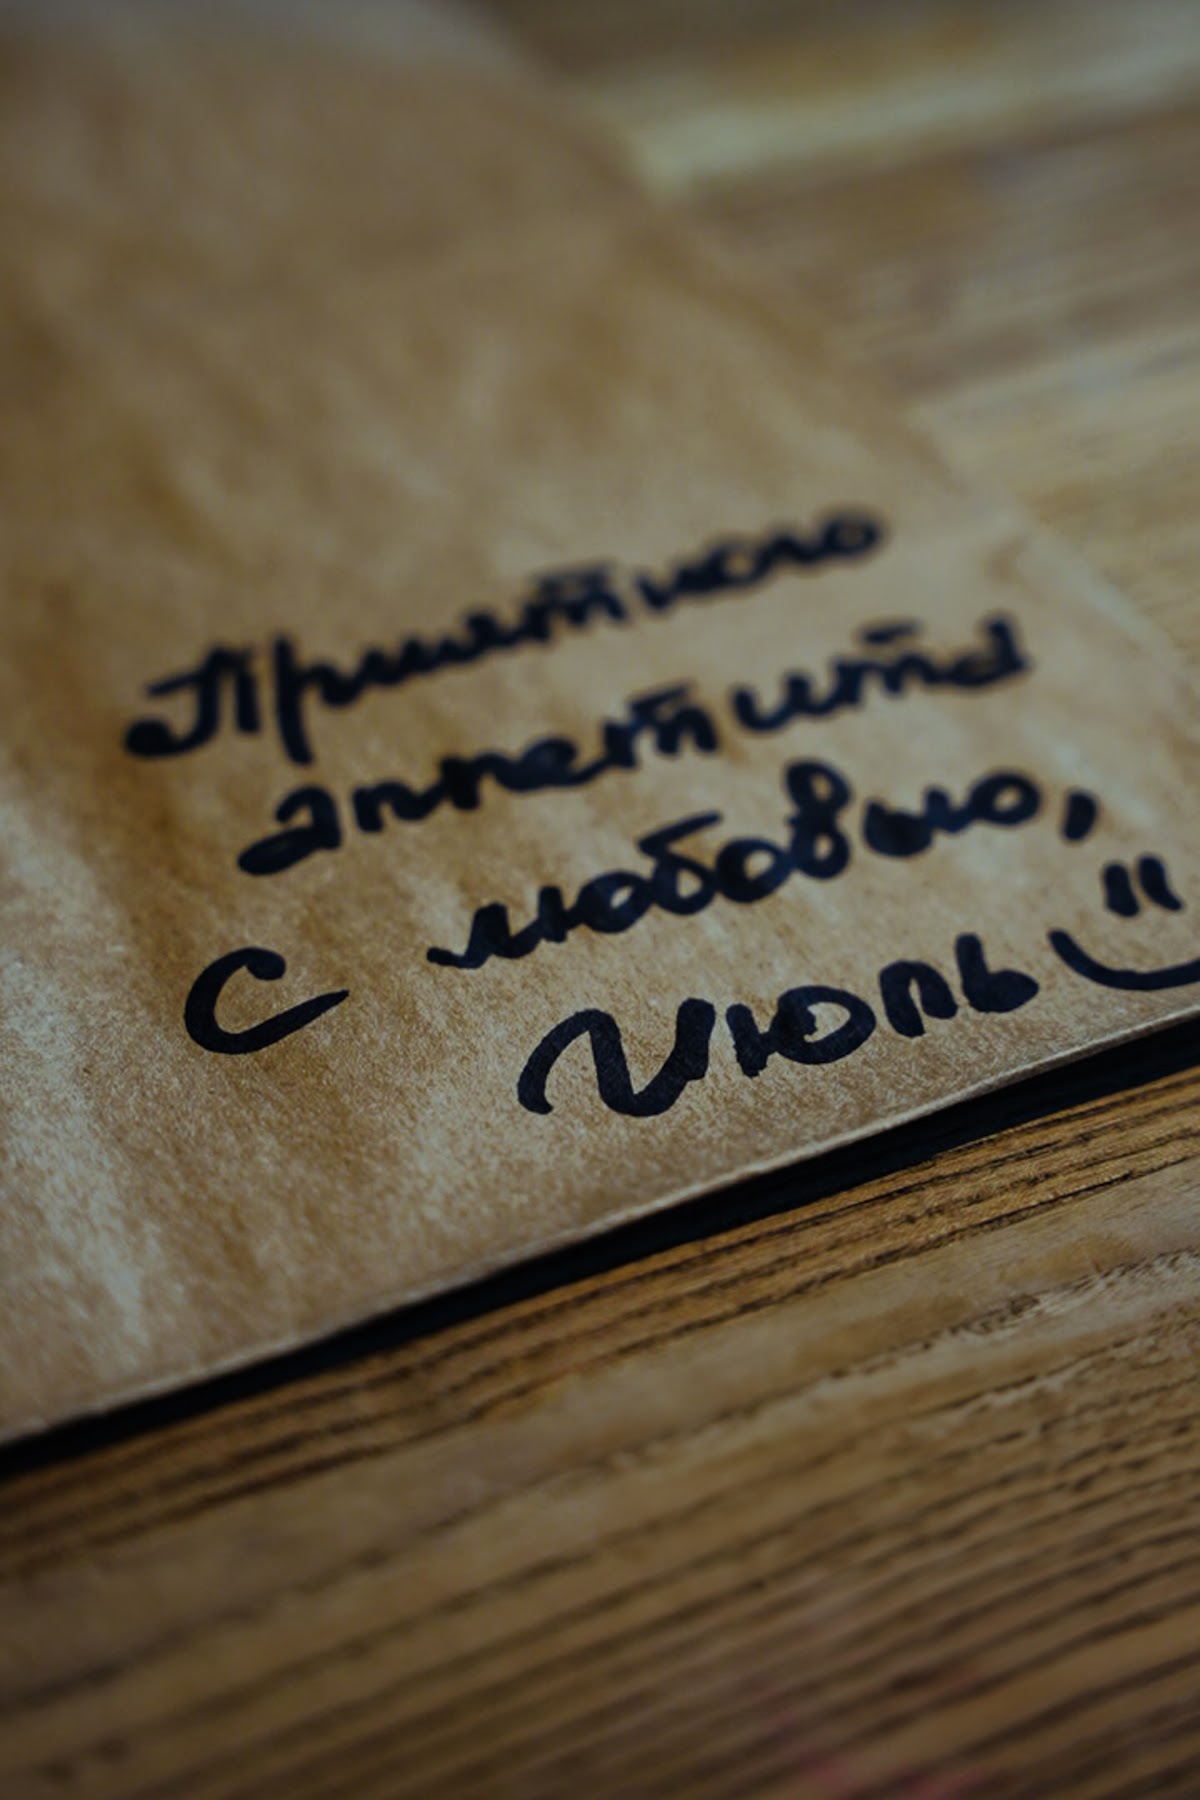 Приятного
аппетита
С любовью,
Июль